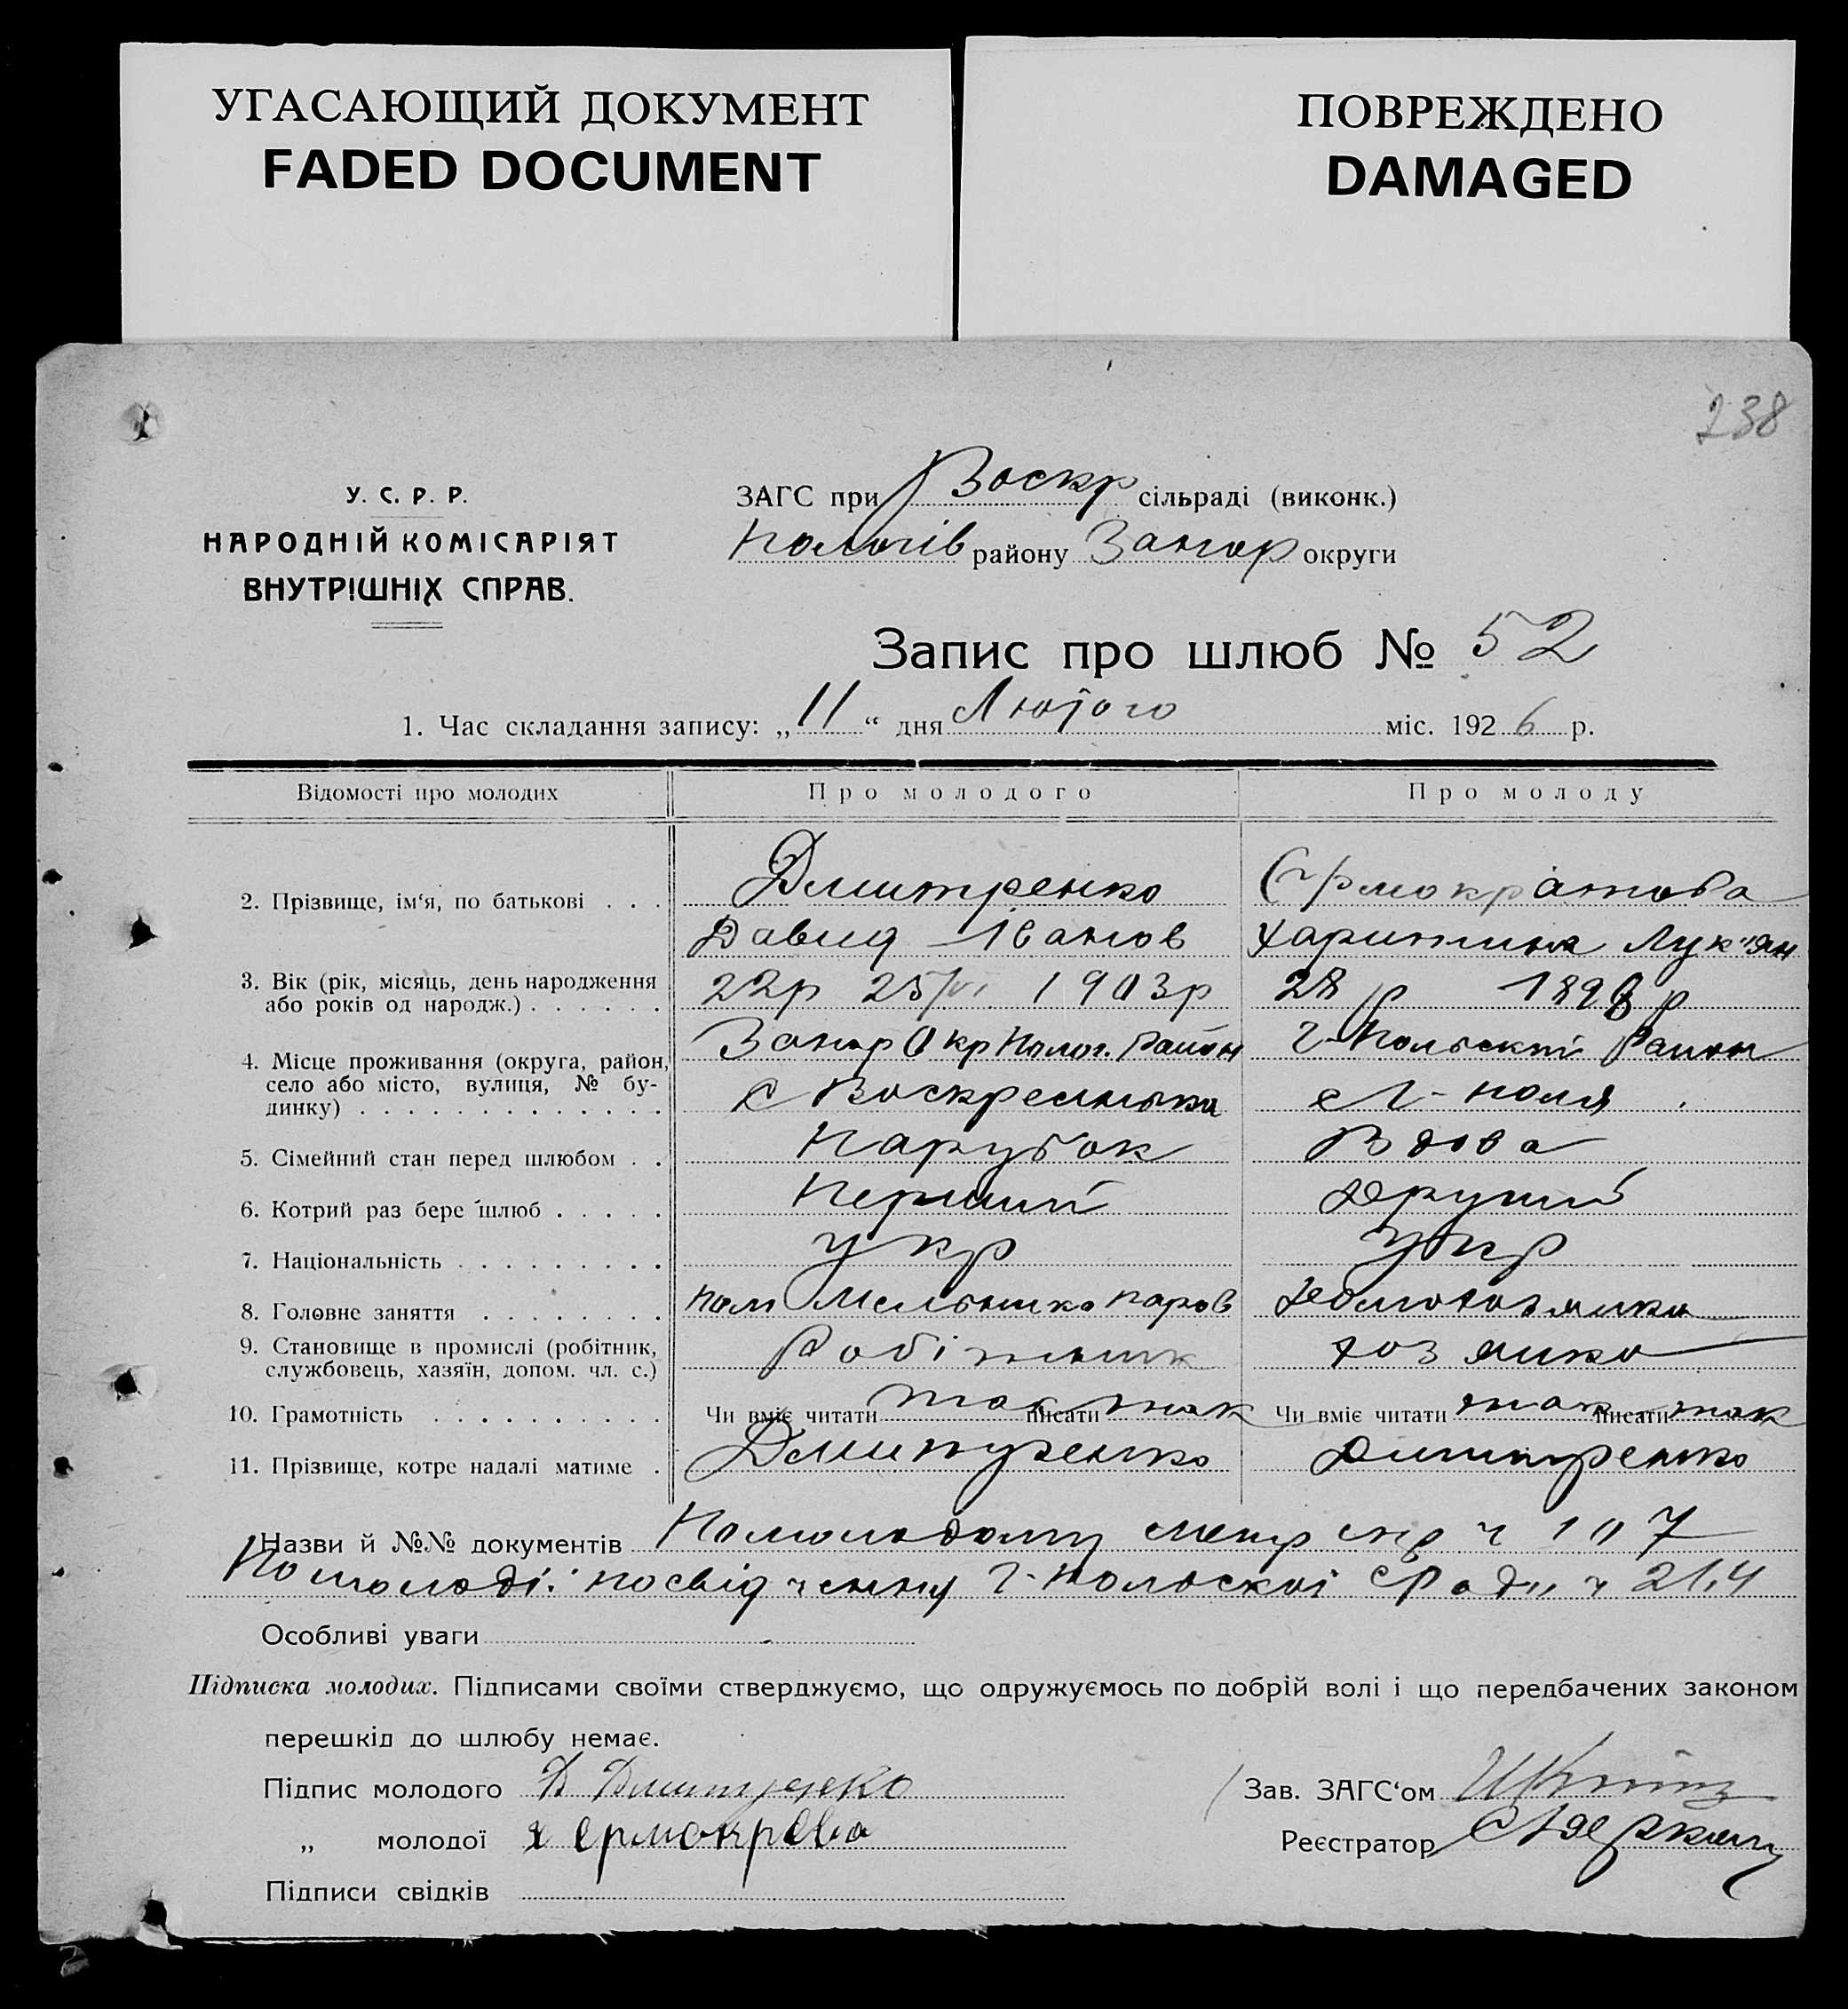 УГАСАЮЩИЙ ДОКУМЕНТ
FADED DOCUMENT
ПОВРЕЖДЕНО
DAMAGED
238
У. С. Р. Р.
НАРОДНІЙ КОМІСАРІЯТ
ВНУТРІШНІХ СПРАВ.
ЗАГС при Воскр сільраді (виконк.)
Пологів району Запор округи
Запис про шлюб № 52
1. Час складання запису: „11“ дня Лютого міс. 1926 р.
Відомості про молодих Про молодого Про молоду
2. Прізвище, ім‘я, по батькові . . . Дмитренко Єрмократова
Давид Іванов Харитина Лук"ян
3. Вік (рік, місяць, день народження або років од народж.) . . . . . . 22р 25/VI 1903р 28 р 1898 р
4. Місце проживання (округа, район, село або місто, вулиця, № будинку) . . . . . . . . . . . . . Запор Окр Полог. Район Г-Польскій Район
с Воскресенька с Г-поля
5. Сімейний стан перед шлюбом . . Парубок Вдова
6. Котрий раз бере шлюб . . . . . Перший Другий
7. Національність . . . . . . . . . укр укр
8. Головне заняття . . . . . . . . пом Мельника паров домохозяика
9. Становище в промислі (робітник, службовець, хазяїн, допом. чл. с.) Робітник хозяика
10. Грамотність . . . . . . . . . . Чи вміє читати так писати так Чи вміє читати так писати так
11. Прізвище, котре надалі матиме . Дмитренко Дмитренко
Назви й №№ документів По молодому метр ч 107
По молоді: посвідченню Г-Польскої с Ради ч 214
Особливі уваги
Підписка молодих. Підписами своїми стверджуємо, що одружуємось по добрій волі і що передбачених законом
перешкід до шлюбу немає.
Підпис молодого Д Дмитренко Зав. ЗАГС‘ом
„ молодої х ермокрава Реєстратор
Підписи свідків